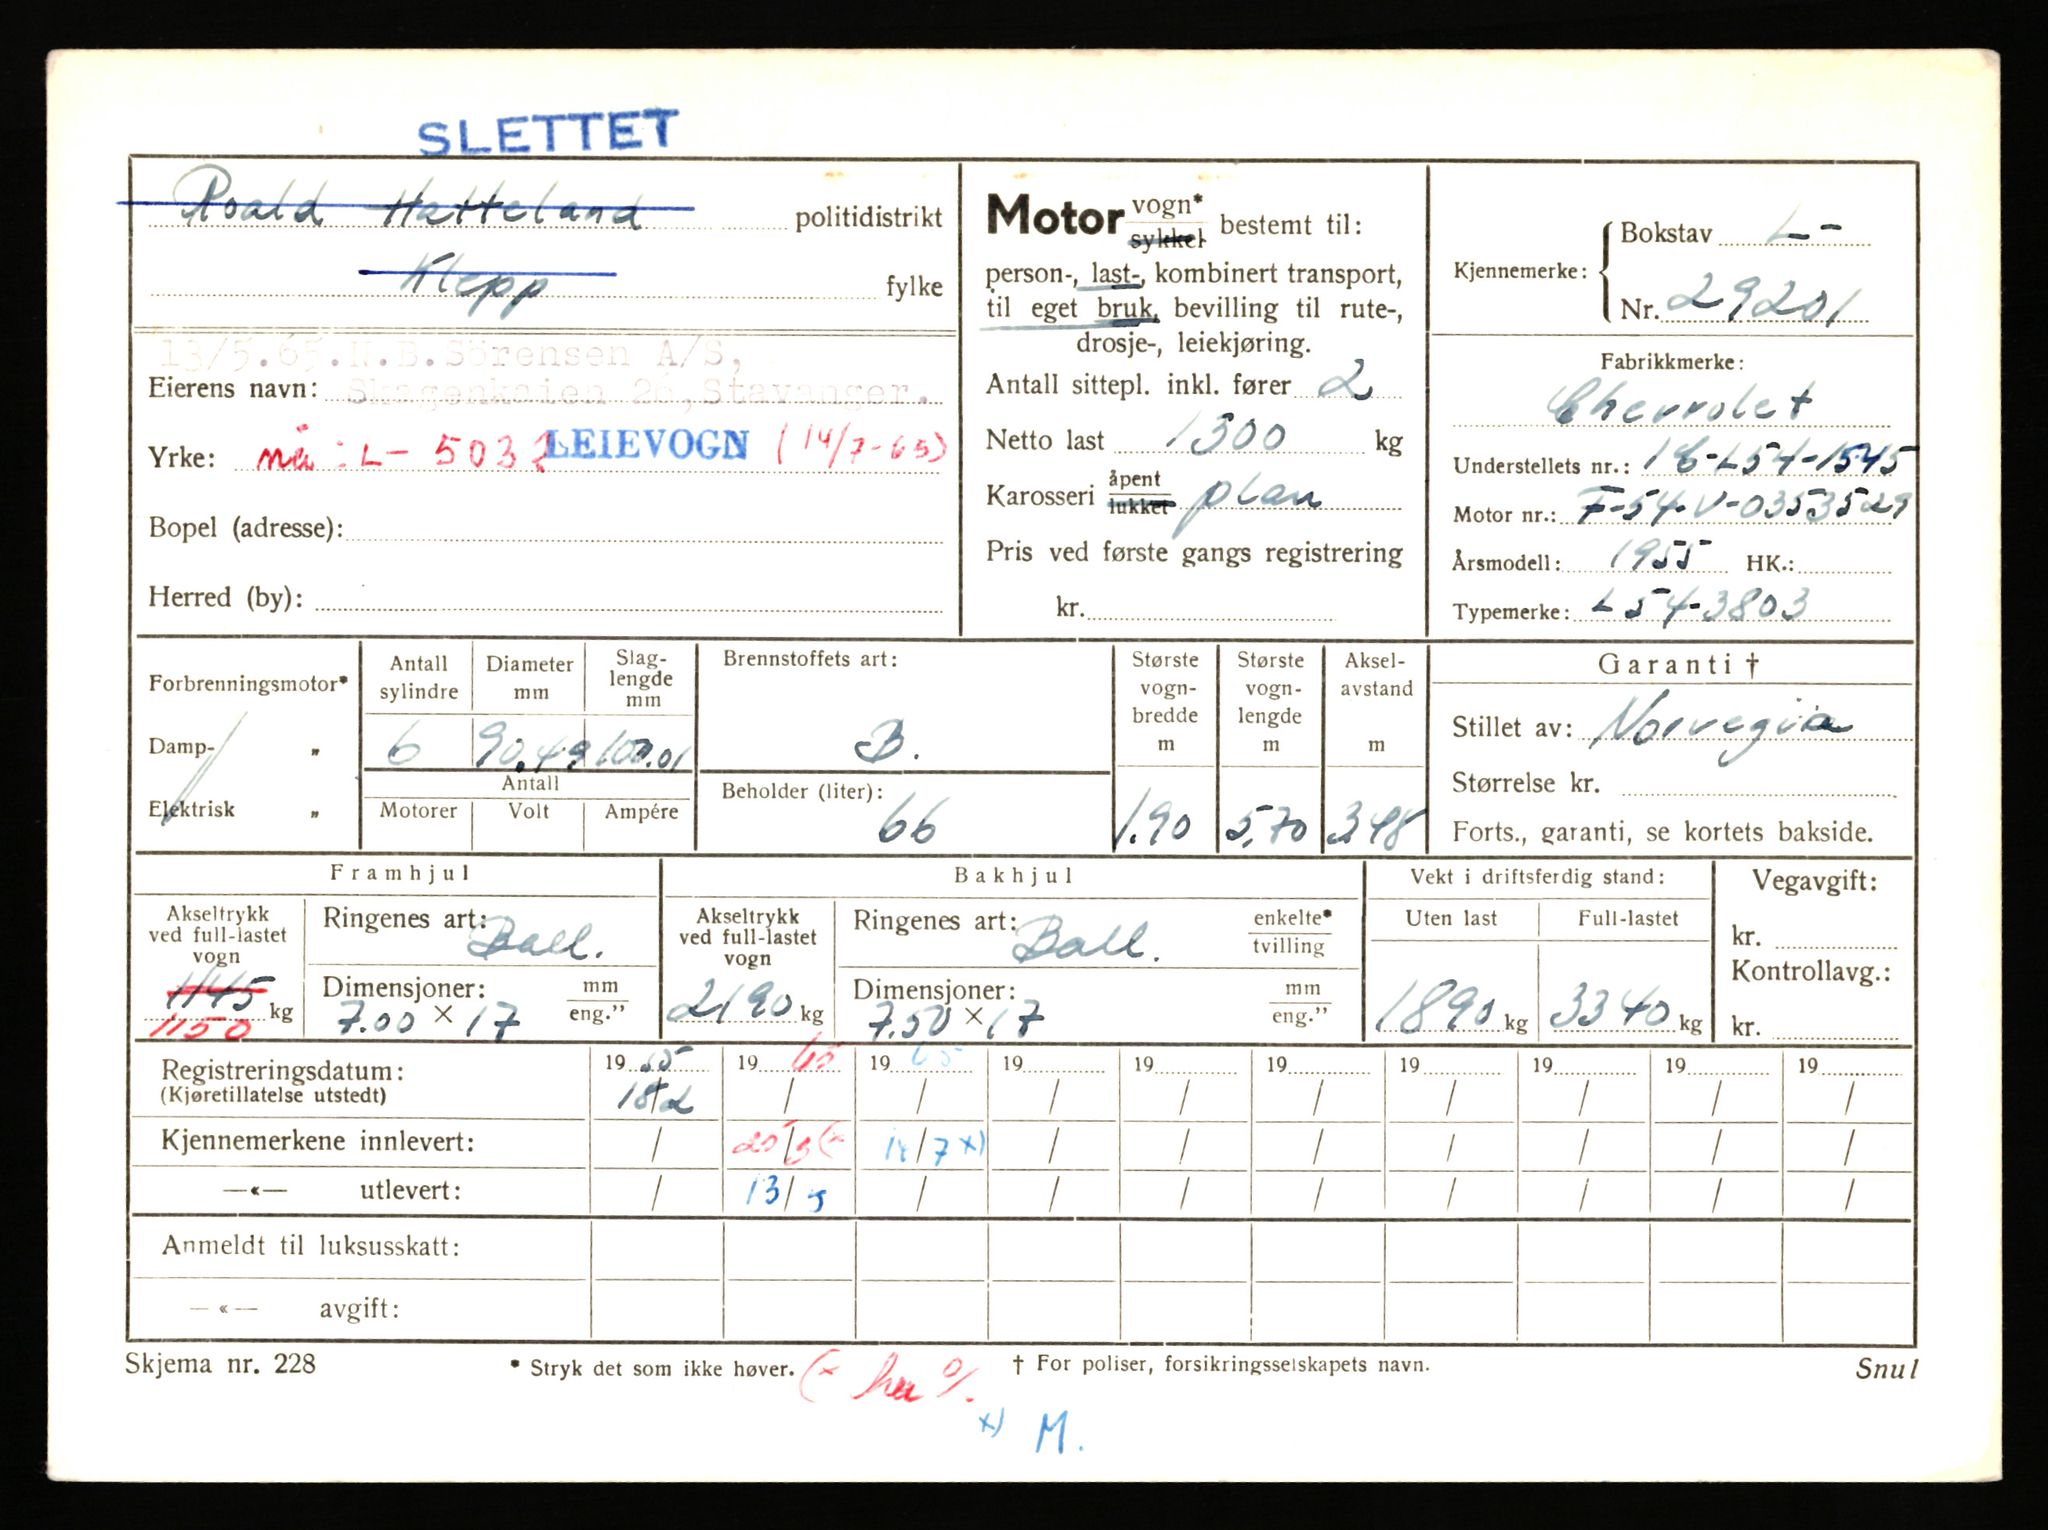 SLETTET
Roald Hatteland politidistrikt
Klepp fylke
13/5.65. N.B.Sörensen A/S,
Eierens navn: Skagenkaien 26, Stavanger.
Yrke: nå: L- 5037 LEIEVOGN (14/7-65)
Bopel (adresse):
Herred (by):
Motor vogn* sykkel bestemt til:
person-, last-, kombinert transport,
til eget bruk, bevilling til rute-,
drosje-, leiekjøring.
Antall sittepl. inkl. fører 2
Netto last 1300 kg
Karosseri åpent lukket plan
Pris ved første gangs registrering
kr.
Kjennemerke: Bokstav L-
Nr. 29201
Fabrikkmerke:
Chevrolet
Understellets nr.: 18-L54-1545
Motor nr.: F-54-V-0353529
Årsmodell: 1955 HK.:
Typemerke: L54-3803
Forbrenningsmotor*
Damp- „
Elektrisk „
Antall sylindre Diameter mm Slag-lengde mm
6 90.49 100.01
Antall
Motorer Volt Ampére
Brennstoffets art:
B.
Beholder (liter):
66
Største vogn-bredde m
1.90
Største vogn-lengde m
5,70
Aksel-avstand m
3.48
Garanti †
Stillet av: Norvegia
Størrelse kr.
Forts., garanti, se kortets bakside.
Framhjul
Akseltrykk ved full-lastet vogn
1145
1150 kg
Ringenes art: Ball.
Dimensjoner: mm eng."
7.00 × 17
Bakhjul
Akseltrykk ved full-lastet vogn
2190 kg
Ringenes art: Ball. enkelte* tvilling
Dimensjoner: mm eng."
7.50 × 17
Vekt i driftsferdig stand:
Uten last Full-lastet
1890 kg 3340 kg
Vegavgift:
kr.
Kontrollavg.:
kr.
Registreringsdatum: 19 55 19 65 19 65 19 19 19 19 19 19 19
(Kjøretillatelse utstedt) 18/2 / / / / / / / / /
Kjennemerkene innlevert: / 20/3 (× 14/7 ×) / / / / / / /
—«— utlevert: / 13/5 / / / / / / / /
Anmeldt til luksusskatt:
—«— avgift:
Skjema nr. 228 * Stryk det som ikke høver. † For poliser, forsikringsselskapets navn. Snul
(×
×) M.